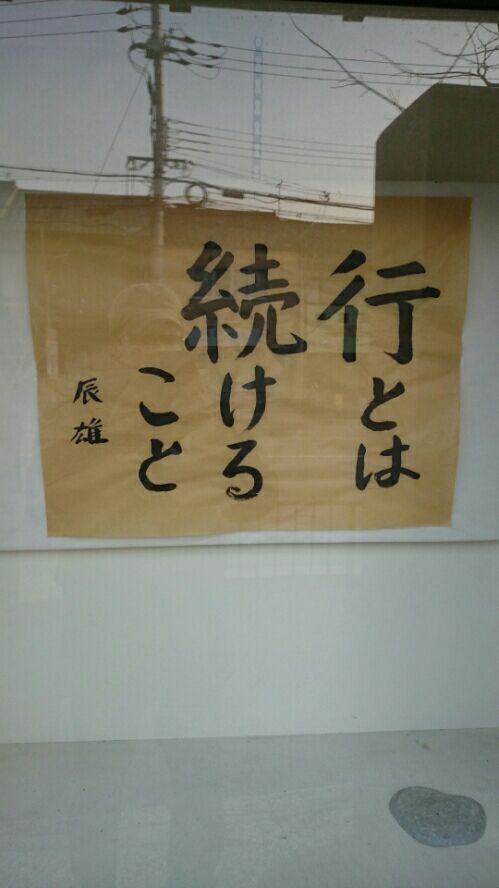 行とは
続ける
こと
辰雄